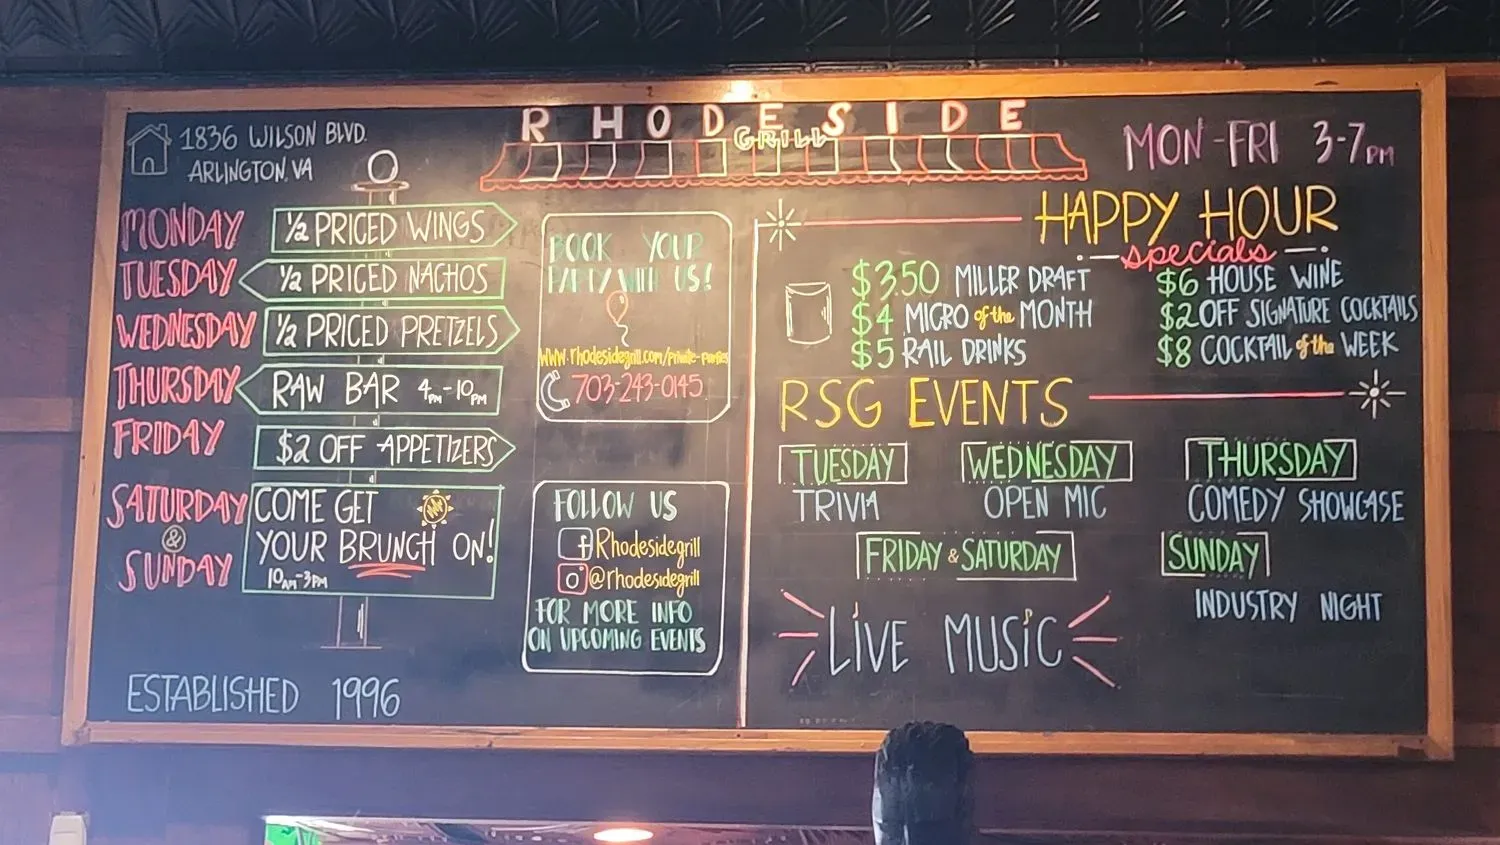 RHODESIDE
GRILL
1836 WILSON BLVD.
ARLINGTON, VA
MONDAY
½ PRICED WINGS
TUESDAY
½ PRICED NACHOS
WEDNESDAY
½ PRICED PRETZELS
THURSDAY
RAW BAR 4PM-10PM
FRIDAY
$2 OFF APPETIZERS
SATURDAY
&
SUNDAY
COME GET
YOUR BRUNCH ON!
10AM-3PM
ESTABLISHED 1996
BOOK YOUR
PARTY WITH US!
www.rhodesidegrill.com/private-parties
703-243-0145
FOLLOW US
f Rhodesidegrill
@rhodesidegrill
FOR MORE INFO
ON UPCOMING EVENTS
MON-FRI 3-7PM
HAPPY HOUR
specials
$3.50 MILLER DRAFT
$4 MICRO of the MONTH
$5 RAIL DRINKS
$6 HOUSE WINE
$2 OFF SIGNATURE COCKTAILS
$8 COCKTAIL of the WEEK
RSG EVENTS
TUESDAY
TRIVIA
WEDNESDAY
OPEN MIC
THURSDAY
COMEDY SHOWCASE
FRIDAY & SATURDAY
LIVE MUSIC
SUNDAY
INDUSTRY NIGHT